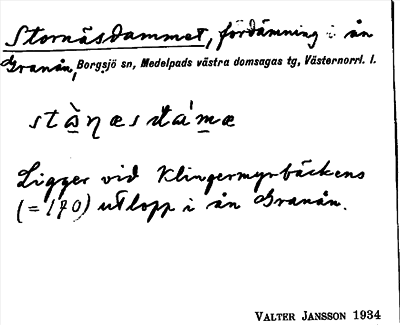 Stornäsdammet, fördämning i ån
Granån, Borgsjö sn, Medelpads västra domsagas tg, Västernorrl. l.
Ligger vid Klingermyrbäckens
(=170) utlopp i ån Granån.
VALTER JANSSON 1934